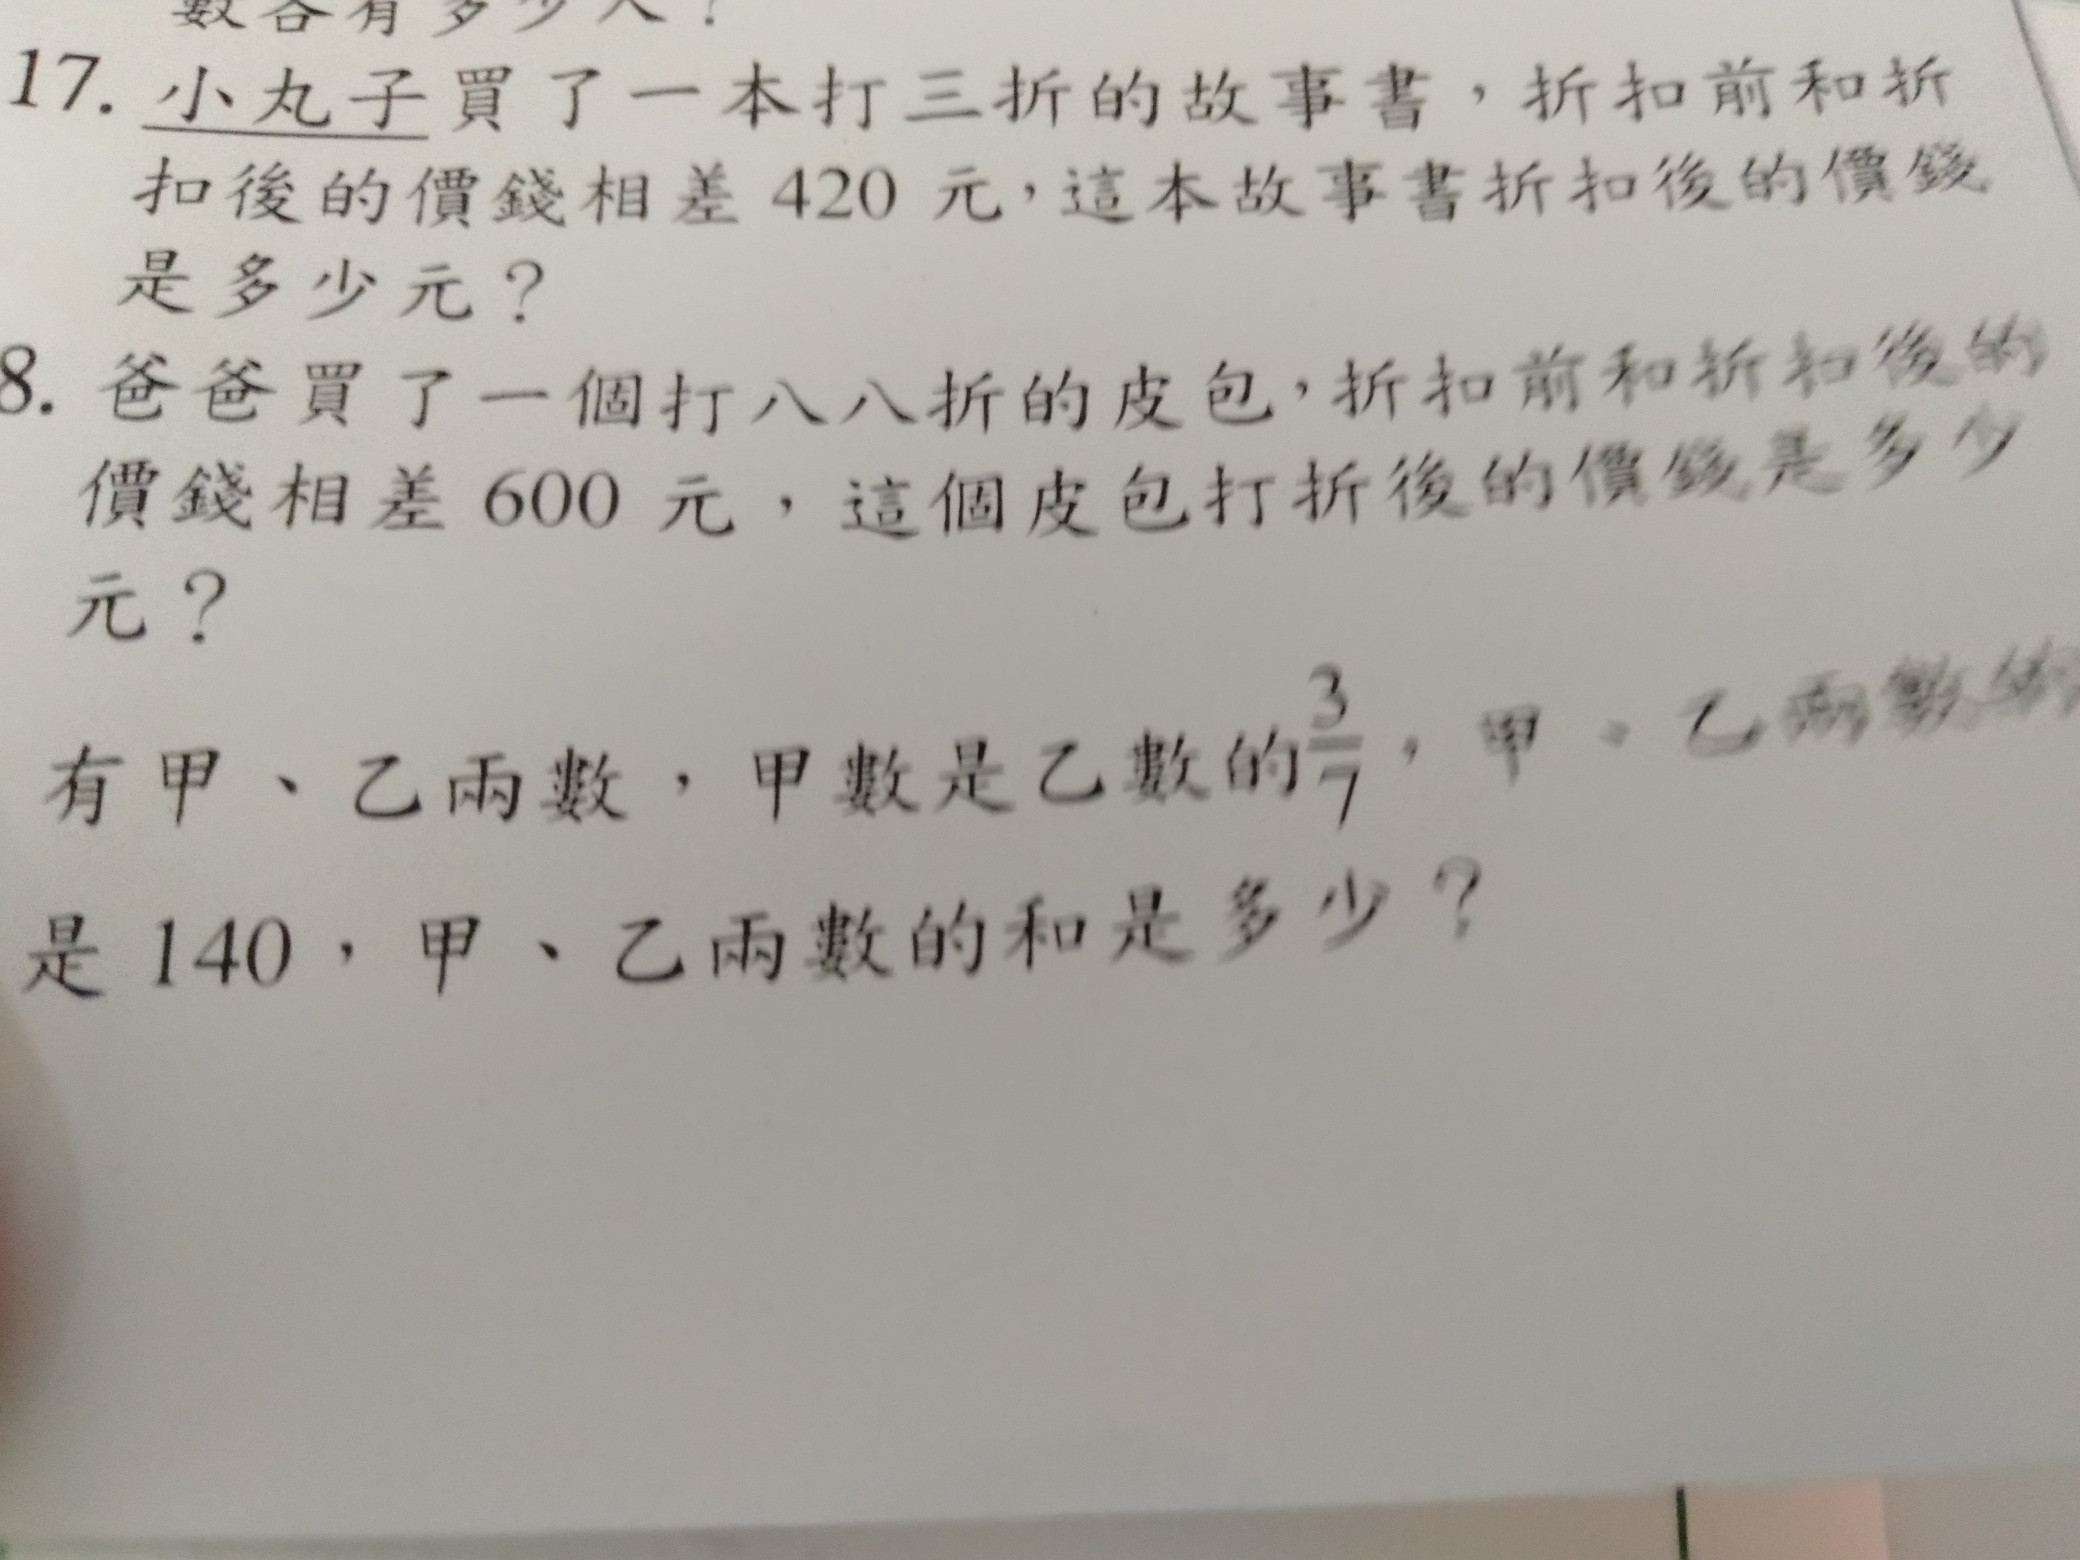 數各有多少人？
17. 小丸子買了一本打三折的故事書，折扣前和折
扣後的價錢相差 420 元，這本故事書折扣後的價錢
是多少元？
8. 爸爸買了一個打八八折的皮包，折扣前和折扣後的
價錢相差 600 元，這個皮包打折後的價錢是多少
元？
有甲、乙兩數，甲數是乙數的3/7，甲、乙兩數的
是 140，甲、乙兩數的和是多少？